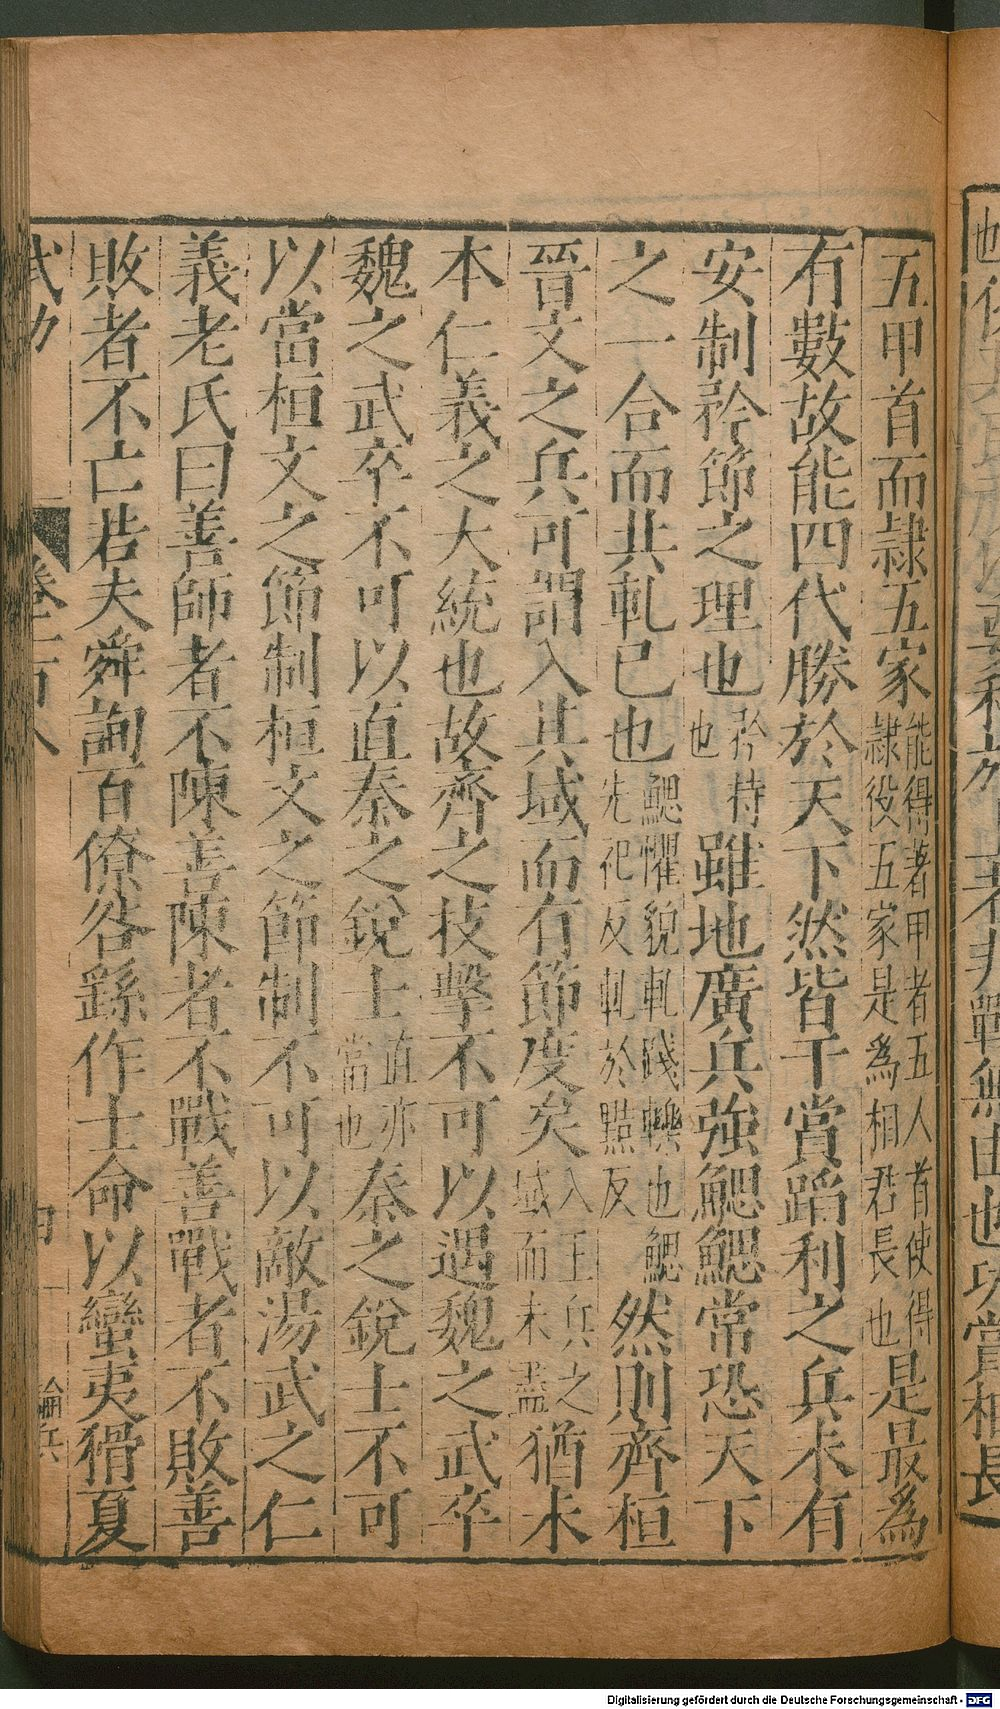 五甲首而隷五家能得著甲者五人首使得隷役五家是爲相君長也是最爲
有數故能四代勝於天下然皆干賞蹈利之兵未有
安制矜節之理也矜持也雖地廣兵強鰓鰓常恐天下
之一合而共軋已也鰓懼貌軋踐轢也鰓先祀反軋於黠反然則齊桓
晉文之兵可謂入其域而有節度矣入王兵之域而未盡猶未
本仁義之大統也故齊之技擊不可以遇魏之武卒
魏之武卒不可以直秦之銳士直亦當也秦之銳士不可
以當桓文之節制桓文之節制不可以敵湯武之仁
義老氏曰善師者不陳善陳者不戰善戰者不敗善
敗者不亡若夫舜詢百僚咎繇作士命以蠻夷猾夏
武功
論兵
Digitalisierung gefördert durch die Deutsche Forschungsgemeinschaft - DFG